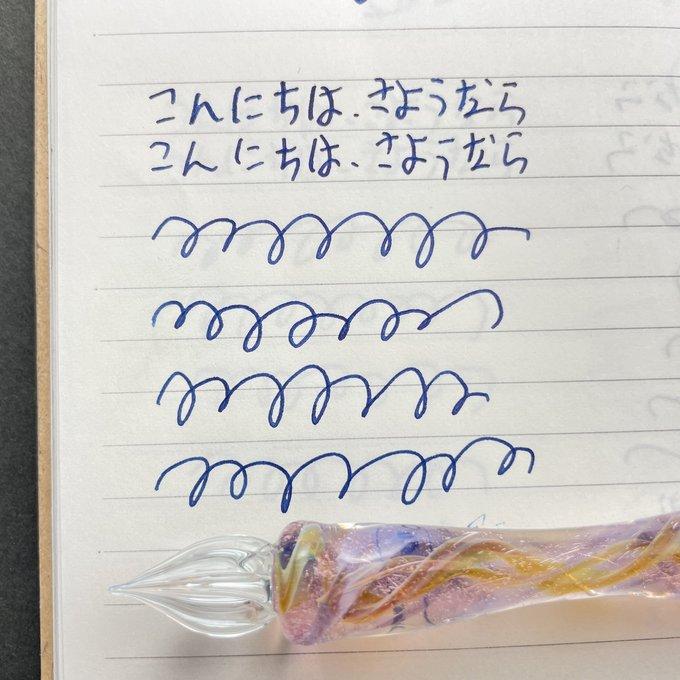 こんにちは.さようなら
こんにちは.さようなら